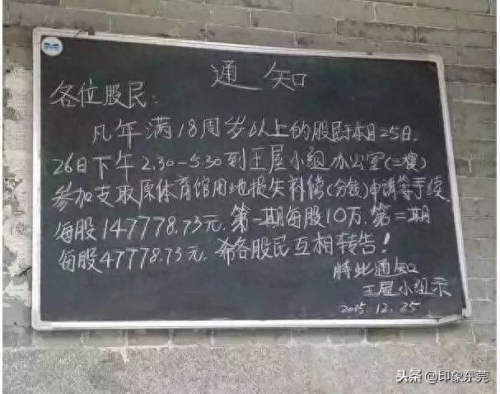 通知
各位股民：
凡年满18周岁以上的股民于本月25日.
26日下午2.30-5.30到王屋小组办公室(二楼)
参加支取原体育馆用地损失补偿(分红)申请等手续.
每股147778.73元.第一期每股10万.第二期
每股47778.73元.希各股民互相转告！
特此通知
王屋小组示
2015.12.25
头条@印象东莞